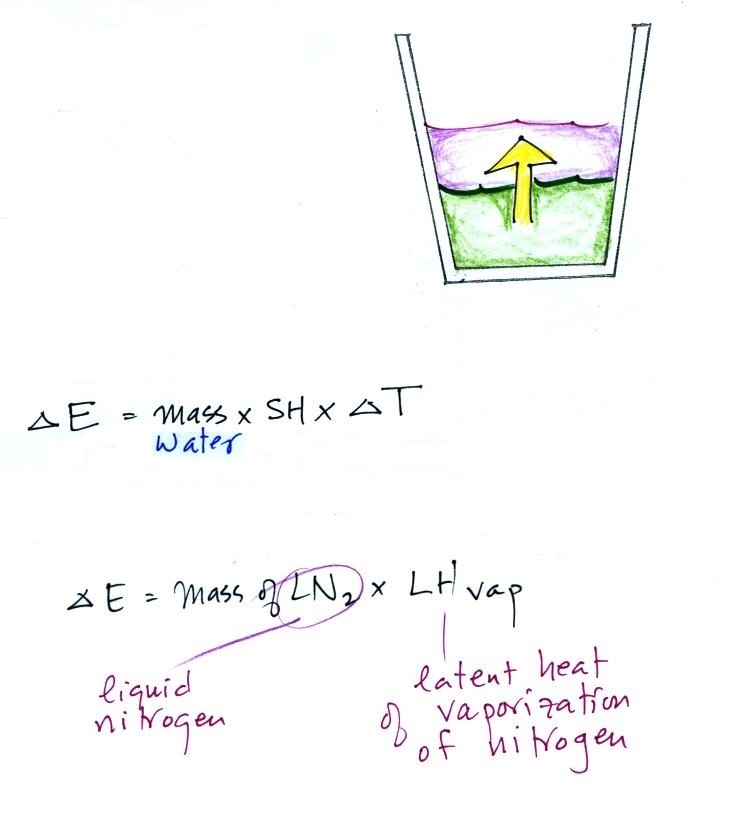 △E = mass x SH x △T
water
△E = mass of LN₂ x LH vap
liquid
nitrogen
latent heat
of vaporization
of nitrogen